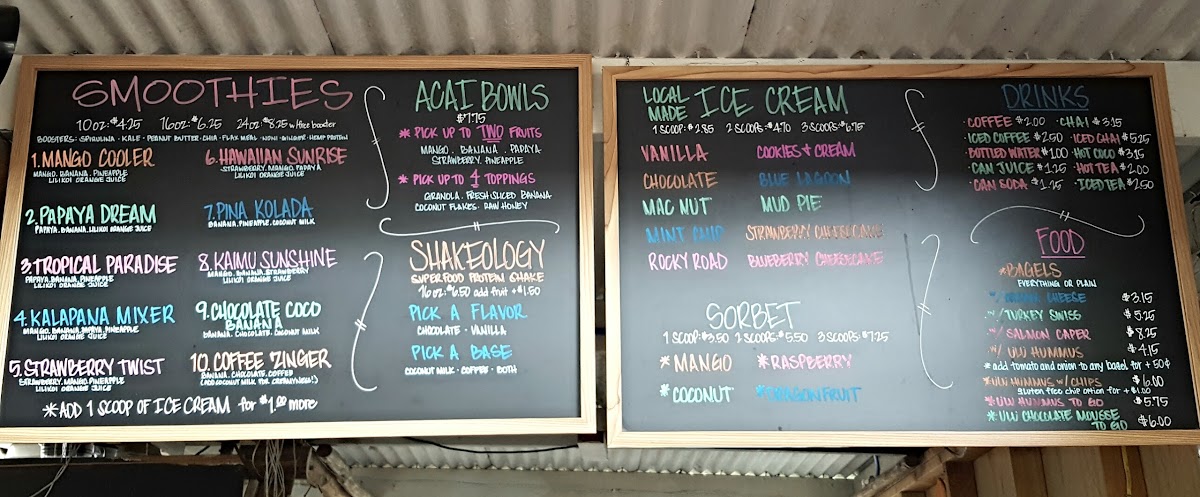 SMOOTHIES
10oz: $4.25 16oz: $6.25 24oz: $8.25 w/free booster
BOOSTERS: SPIRULINA · KALE · PEANUT BUTTER · CHIA · FLAX MEAL · NONI · GINGER · HEMP PROTEIN
1. MANGO COOLER
MANGO, BANANA, PINEAPPLE
LILIKOI ORANGE JUICE
2. PAPAYA DREAM
PAPAYA, BANANA, LILIKOI ORANGE JUICE
3. TROPICAL PARADISE
PAPAYA, BANANA, PINEAPPLE
LILIKOI ORANGE JUICE
4. KALAPANA MIXER
MANGO, BANANA, PAPAYA, PINEAPPLE
LILIKOI ORANGE JUICE
5. STRAWBERRY TWIST
STRAWBERRY, MANGO, PINEAPPLE
LILIKOI ORANGE JUICE
6. HAWAIIAN SUNRISE
STRAWBERRY, MANGO, PAPAYA
LILIKOI ORANGE JUICE
7. PINA KOLADA
BANANA, PINEAPPLE, COCONUT MILK
8. KAIMU SUNSHINE
MANGO, BANANA, STRAWBERRY
LILIKOI ORANGE JUICE
9. CHOCOLATE COCO
BANANA
BANANA, CHOCOLATE, COCONUT MILK
10. COFFEE ZINGER
BANANA, CHOCOLATE, COFFEE
(ADD COCONUT MILK FOR CREAMYNESS!)
*ADD 1 SCOOP OF ICE CREAM for $1.00 more
ACAI BOWLS
$7.75
* PICK UP TO TWO FRUITS
MANGO · BANANA · PAPAYA
STRAWBERRY, PINEAPPLE
* PICK UP TO 4 TOPPINGS
GRANOLA · FRESH SLICED BANANA
COCONUT FLAKES · RAW HONEY
SHAKEOLOGY
SUPERFOOD PROTEIN SHAKE
16oz: $6.50 add fruit + $1.50
PICK A FLAVOR
CHOCOLATE · VANILLA
PICK A BASE
COCONUT MILK · COFFEE · BOTH
LOCAL MADE ICE CREAM
1 SCOOP: $2.85 2 SCOOPS: $4.70 3 SCOOPS: $6.75
VANILLA
CHOCOLATE
MAC NUT
MINT CHIP
ROCKY ROAD
COOKIES + CREAM
BLUE LAGOON
MUD PIE
STRAWBERRY CHEESECAKE
BLUEBERRY CHEESECAKE
SORBET
1 SCOOP: $3.50 2 SCOOPS: $5.50 3 SCOOPS: $7.25
* MANGO
* COCONUT
* RASPBERRY
* DRAGONFRUIT
DRINKS
· COFFEE $2.00 · CHAI $3.15
· ICED COFFEE $2.50 · ICED CHAI $5.25
· BOTTLED WATER $1.00 · HOT COCO $3.15
· CAN JUICE $1.25 · HOT TEA $2.00
· CAN SODA $1.25 · ICED TEA $2.50
FOOD
* BAGELS
EVERYTHING OR PLAIN
w/ CHEESE $3.15
w/ TURKEY SWISS $5.25
w/ SALMON CAPER $8.25
w/ ULU HUMMUS $4.15
* add tomato and onion to any bagel for + 50¢
* ULU HUMMUS w/ CHIPS $6.00
gluten free chip option for + $1.00
* ULU HUMMUS TO GO $5.75
* ULU CHOCOLATE MOUSSE
TO GO $6.00